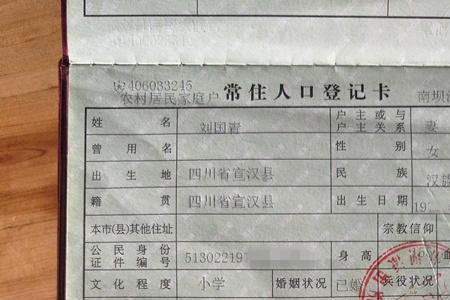 406083245
农村居民家庭户 常住人口登记卡 南坝
姓名 刘国青 户主或与户主关系 妻
曾用名 性别 女
出生地 四川省宣汉县 民族 汉族
籍贯 四川省宣汉县 出生日期 197
本市(县)其他住址 宗教信仰
公民身份证件编号 51302219 身高
文化程度 小学 婚姻状况 已婚 兵役状况